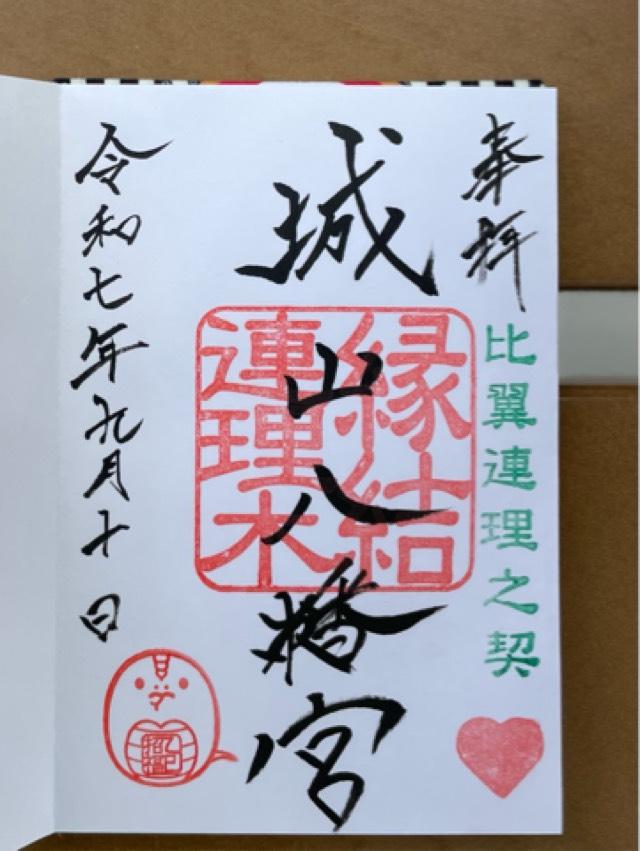 奉拝
比翼連理之契
城山八幡宮
縁結
連理木
令和七年九月十日